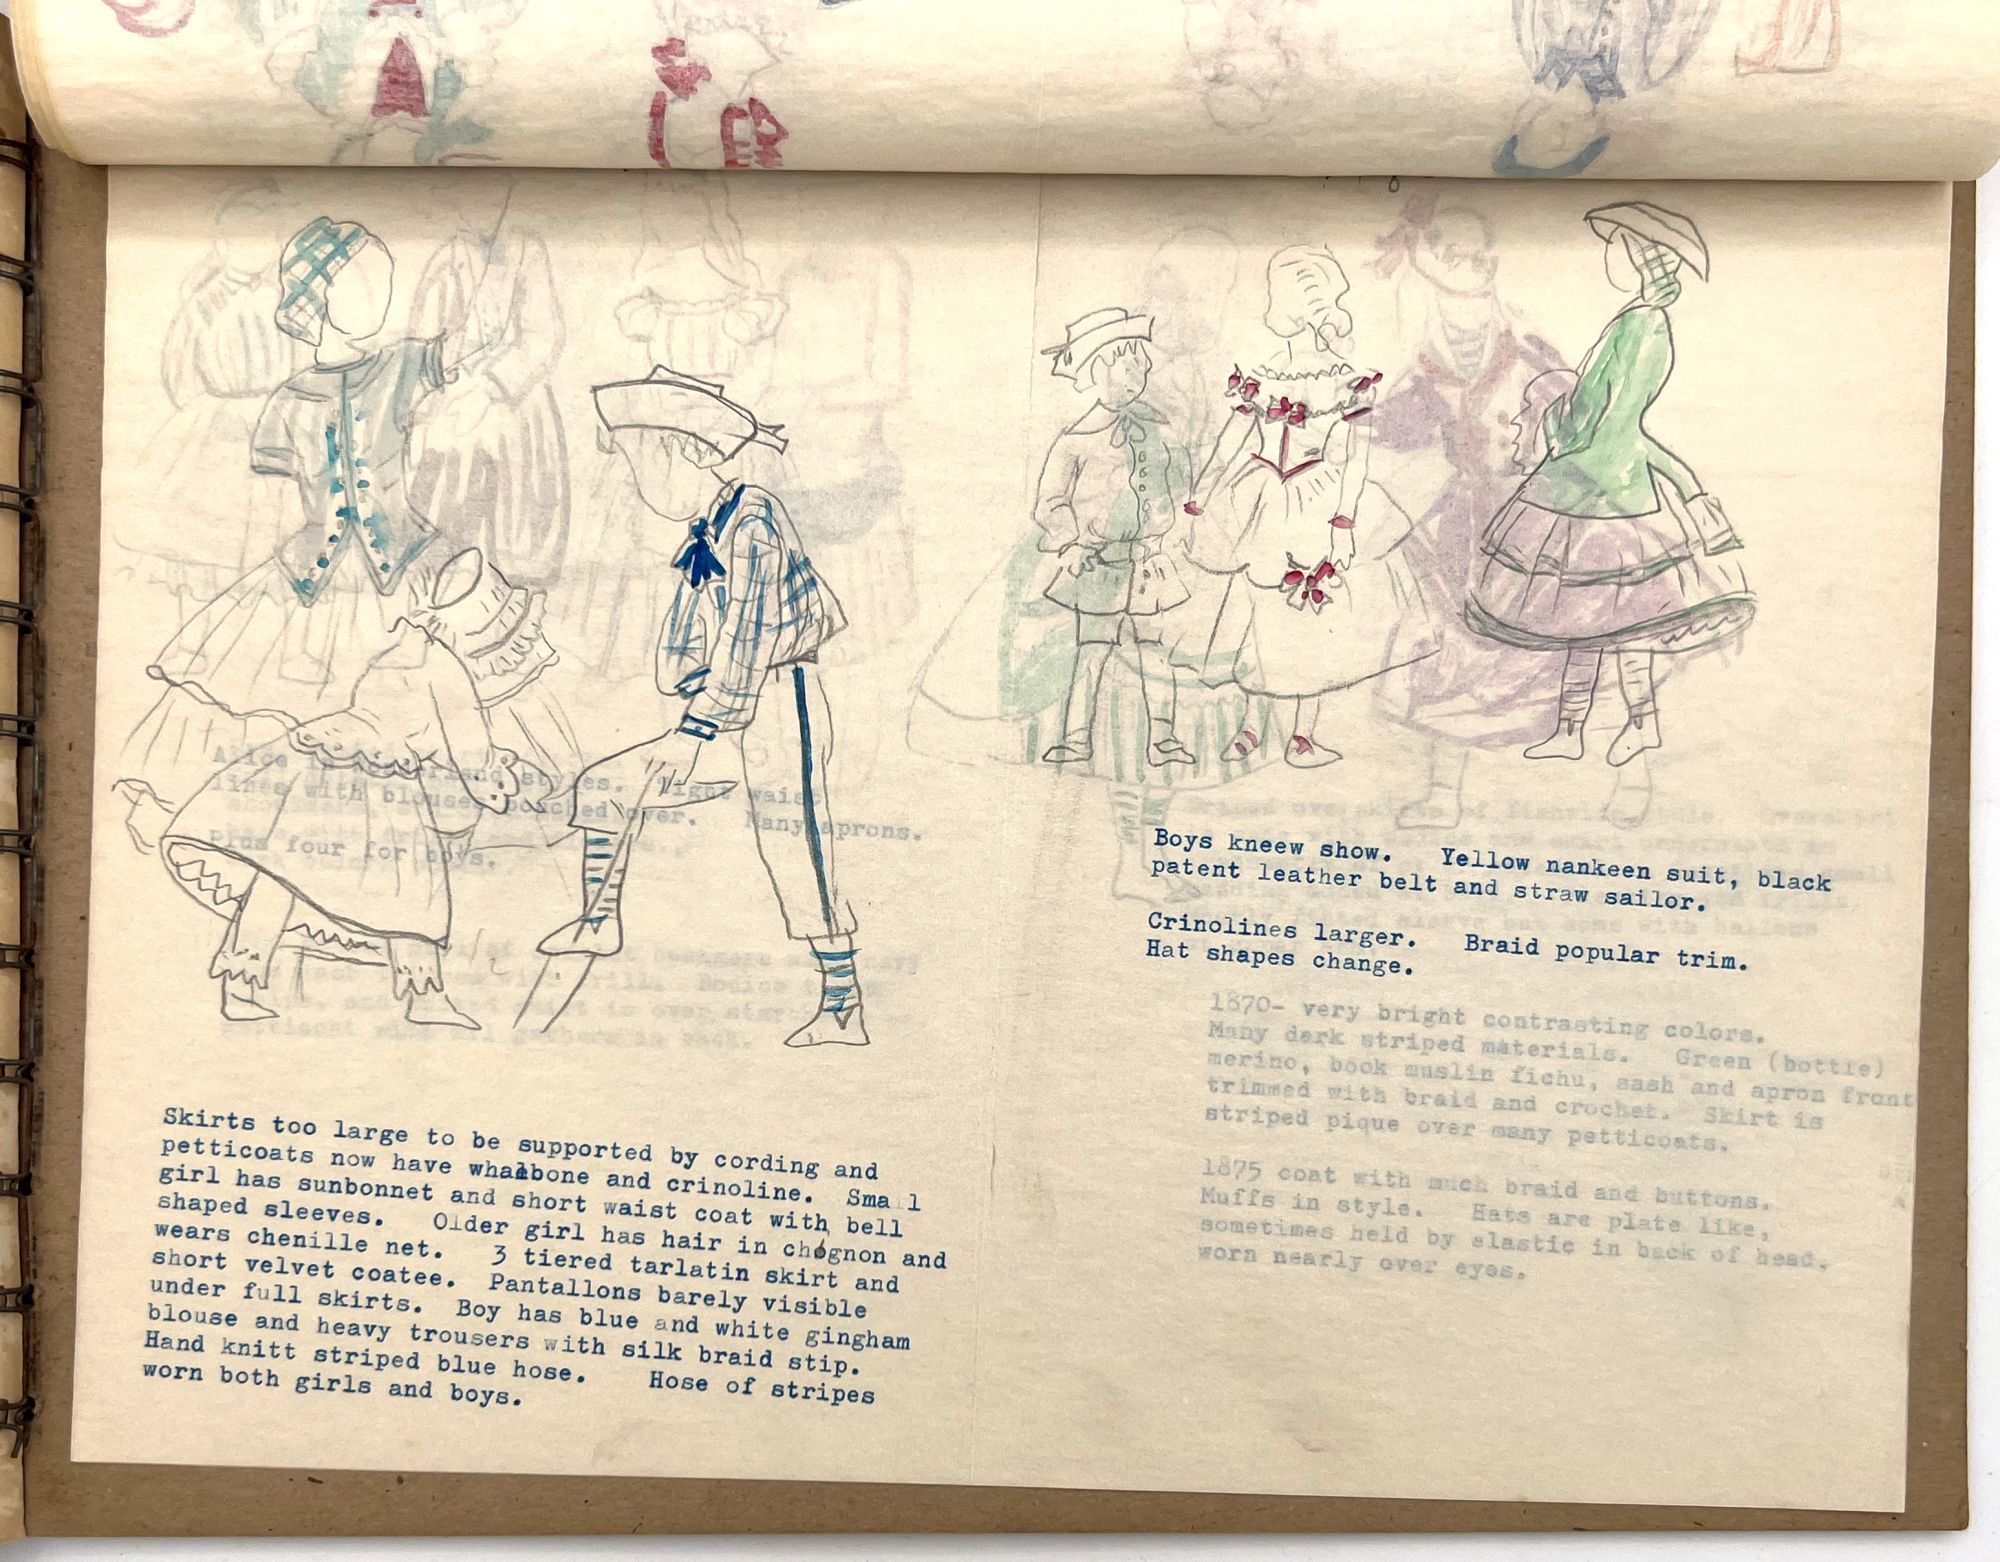 Alice styles. ight waist
lines with blouses pouched over. Many aprons.
plus four for boys.
Skirts too large to be supported by cording and
petticoats now have whalbone and crinoline. Small
girl has sunbonnet and short waist coat with bell
shaped sleeves. Older girl has hair in chognon and
wears chenille net. 3 tiered tarlatin skirt and
short velvet coatee. Pantallons barely visible
under full skirts. Boy has blue and white gingham
blouse and heavy trousers with silk braid stip.
Hand knitt striped blue hose. Hose of stripes
worn both girls and boys.
Boys kneew show. Yellow nankeen suit, black
patent leather belt and straw sailor.
Crinolines larger. Braid popular trim.
Hat shapes change.
1870- very bright contrasting colors.
Many dark striped materials. Green (bottle)
merino, book muslin fichu, sash and apron front
trimmed with braid and crochet. Skirt is
striped pique over many petticoats.
1875 coat with much braid and buttons.
Muffs in style. Hats are plate like,
sometimes held by elastic in back of head.
worn nearly over eyes.